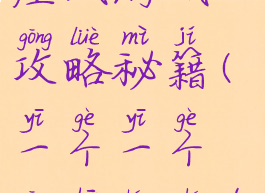 gōng lüè mì jí
攻略秘籍(
yī gè yī gè
一个一个